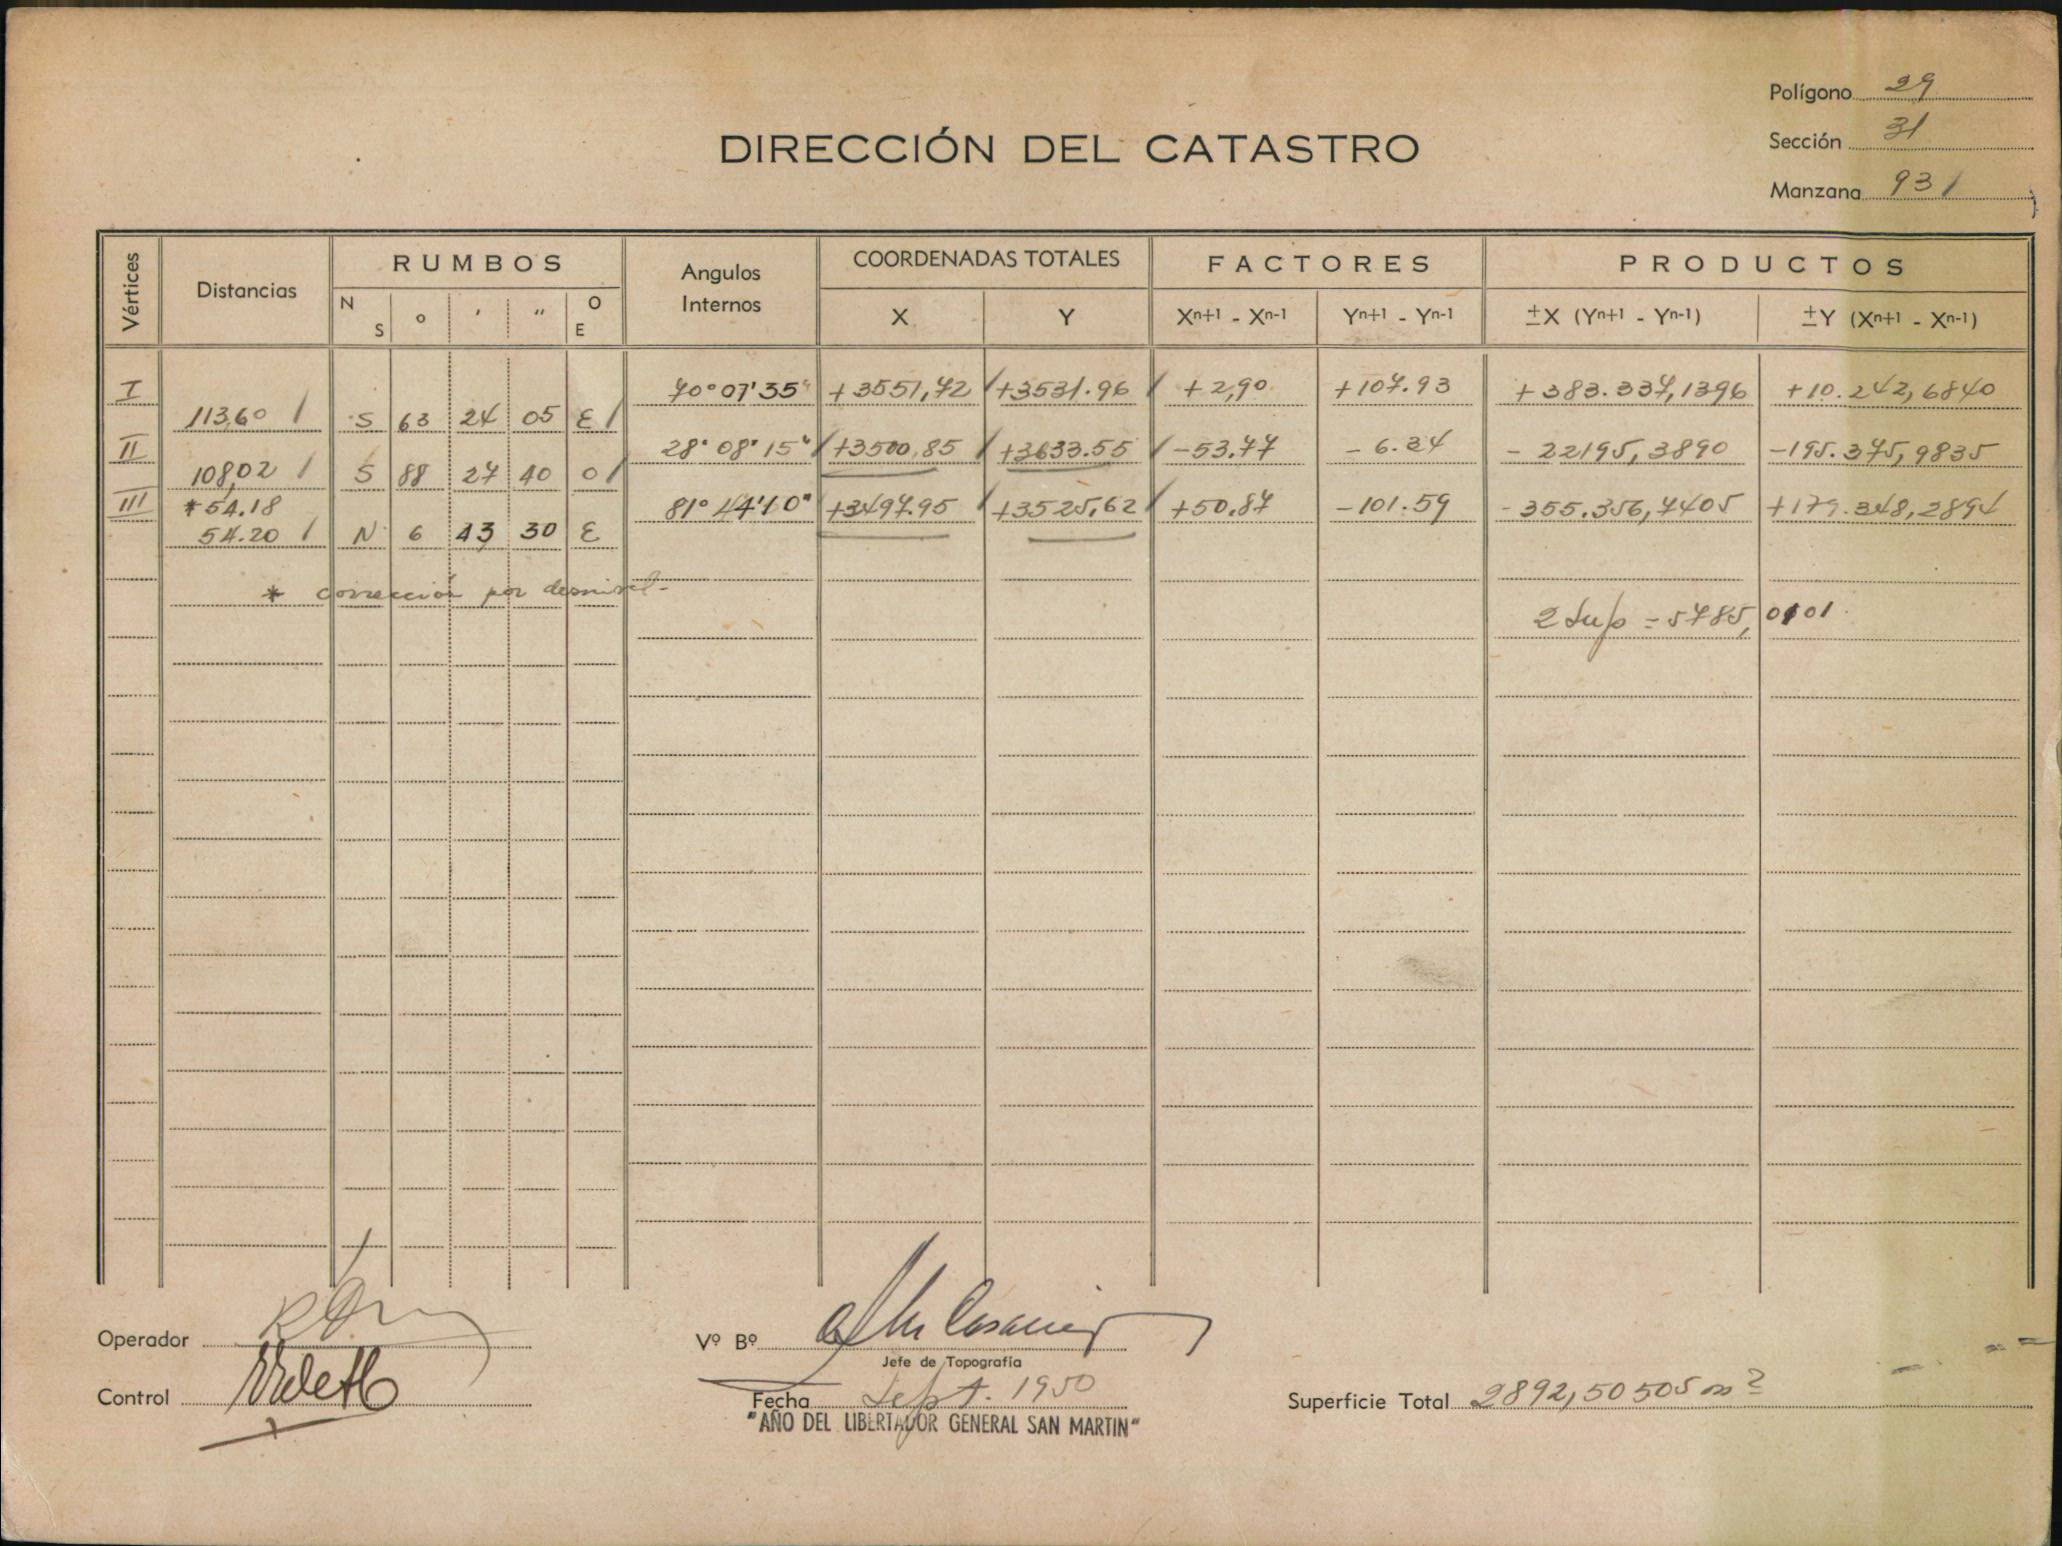 Polígono 29
Sección 31
Manzana 931
DIRECCIÓN DEL CATASTRO
Vértices Distancias RUMBOS Angulos Internos COORDENADAS TOTALES FACTORES PRODUCTOS
N S ° ' " O E X Y Xn+1 - Xn-1 Yn+1 - Yn-1 ±X (Yn+1 - Yn-1) ±Y (Xn+1 - Xn-1)
I 70° 07' 35" +3551,72 +3531.96 +2,90 +107.93 +383.337,1396 +10.242,6840
113,60 S 63 24 05 E
II 28° 08' 15" +3500,85 +3633.55 -53.77 -6.34 -22195,3890 -195.375,9835
108,02 S 88 27 40 O
III *54.18 81° 44' 10" +3497.95 +3525,62 +50.87 -101.59 -355.356,7405 +179.348,2894
54.20 N 6 43 30 E
* corrección por desnivel-
2 Sup = 5785,0101
Operador
Vº Bº
Jefe de Topografía
Control
Fecha Sept. 1950
Superficie Total 2892,50505 m2
"AÑO DEL LIBERTADOR GENERAL SAN MARTIN"